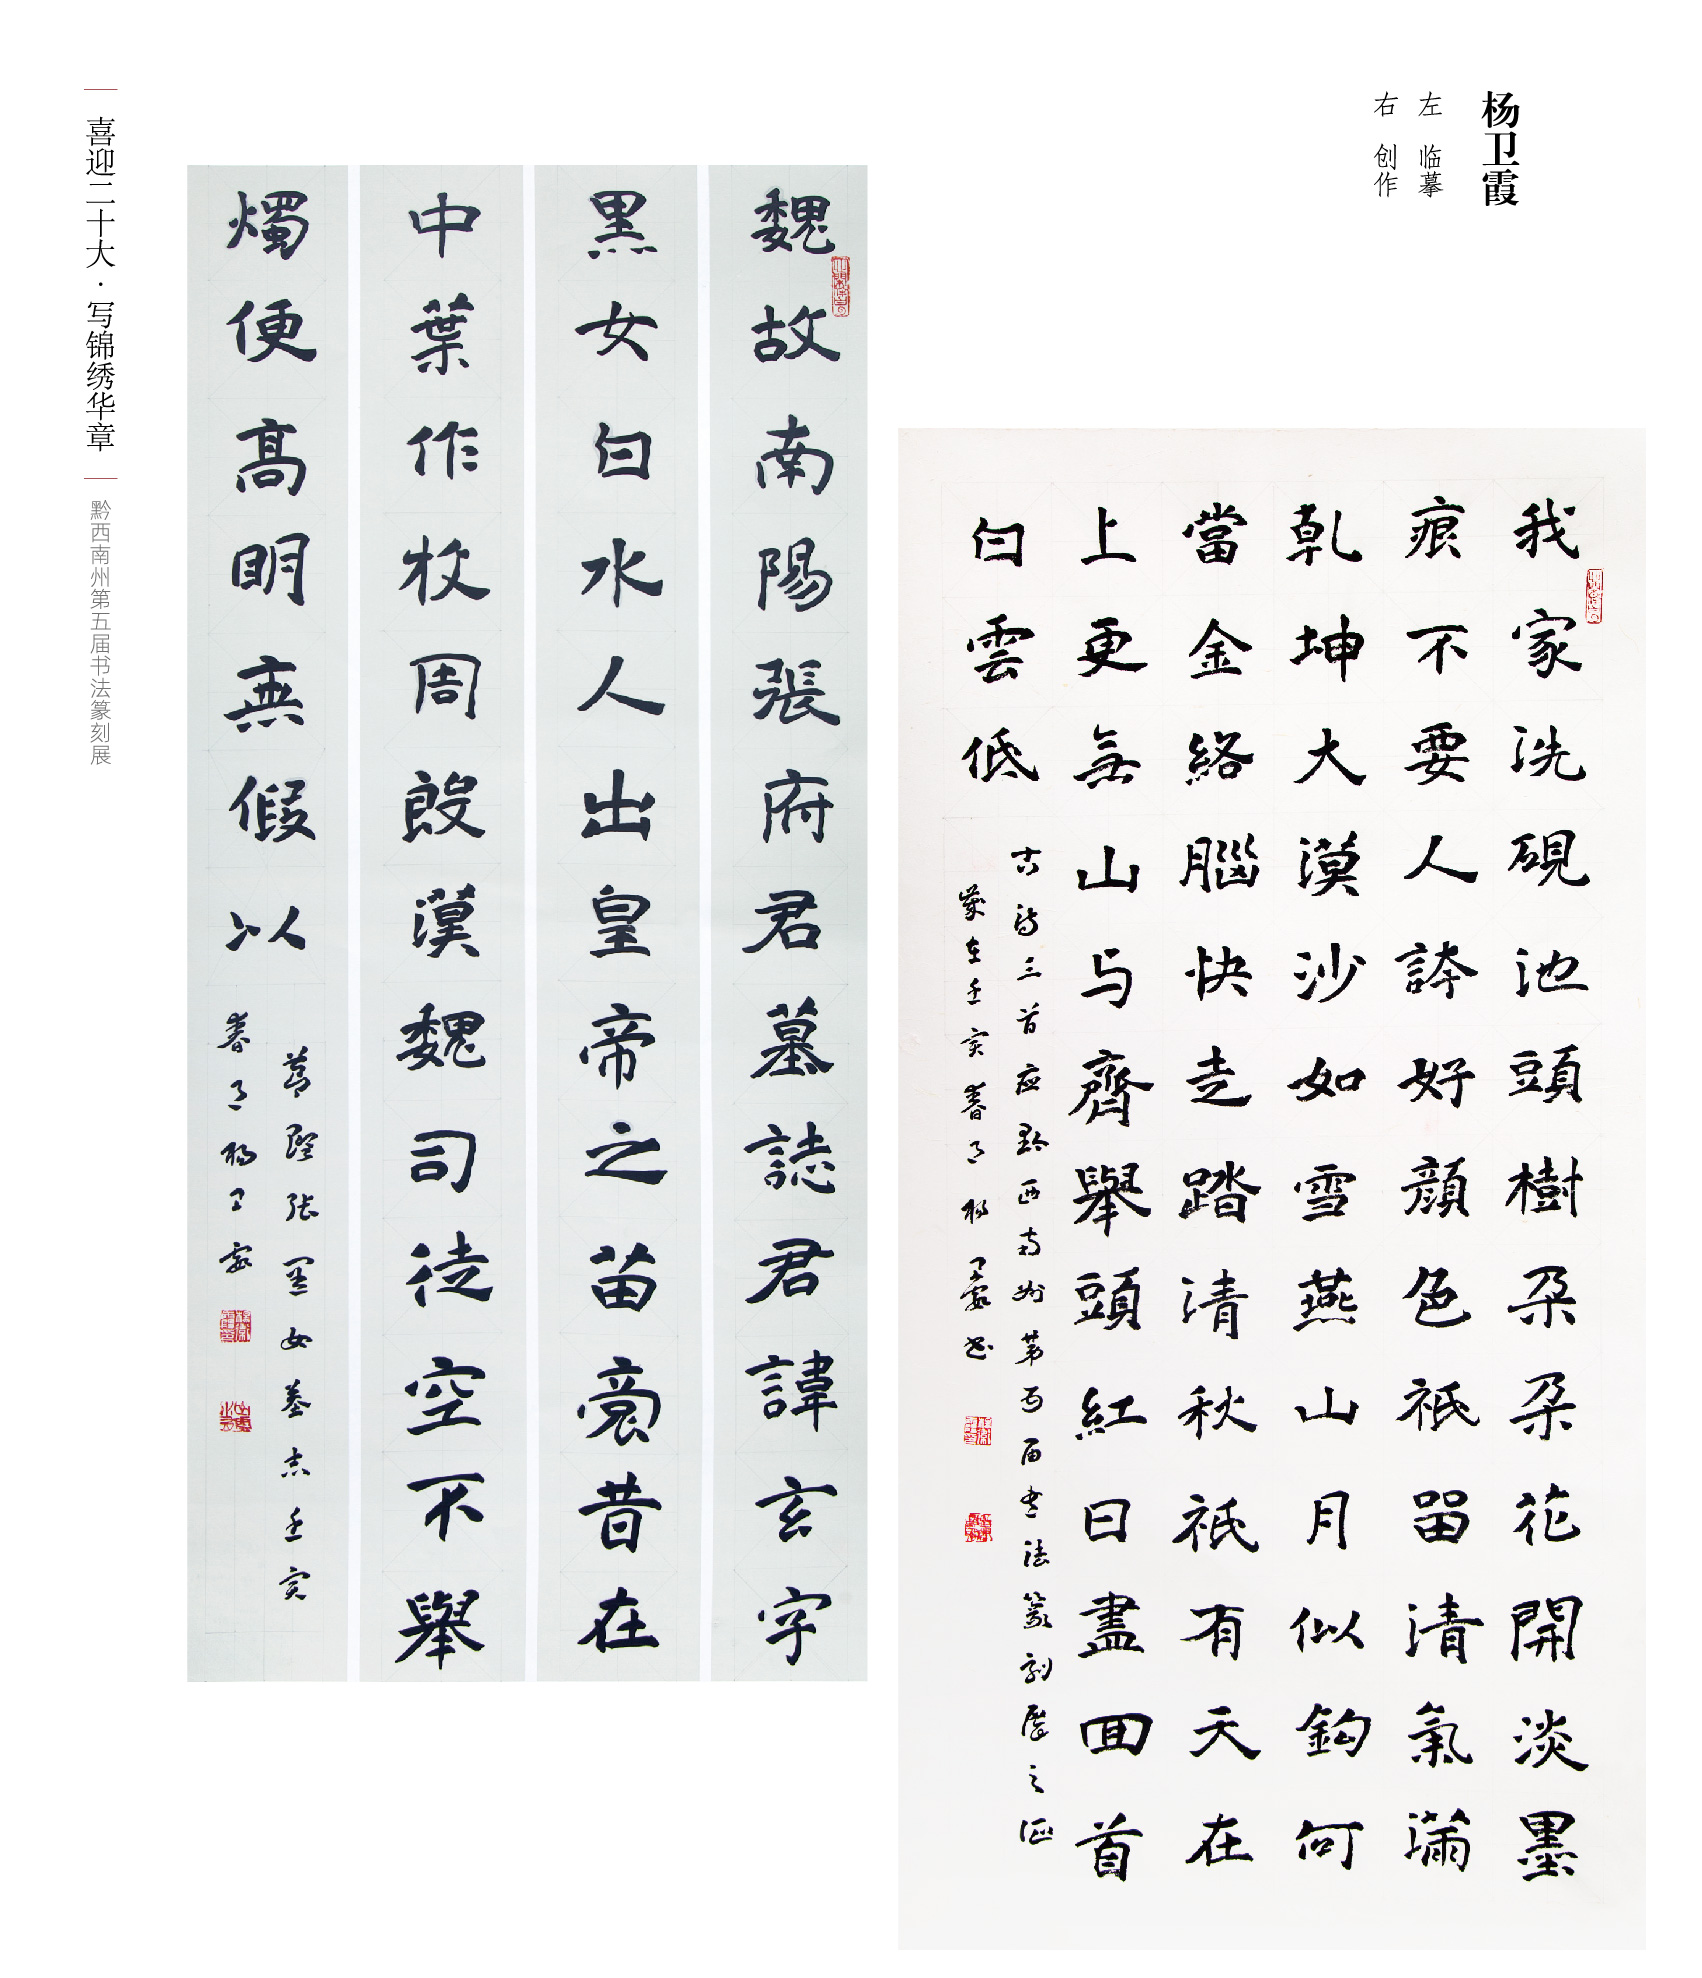 杨卫霞
左 临摹
右 创作
我家洗硯池頭樹朶朶花開淡墨
痕不要人誇好顔色祇留清氣滿
乾坤大漠沙如雪燕山月似鈎何
當金絡腦快走踏清秋祇有天在
上更無山与齊舉頭紅日盡回首
白雲低
古诗三首应黔西南州第五届书法篆刻展之征
岁在壬寅春月杨卫霞书
魏故南陽張府君墓誌君諱玄字
黑女白水人出皇帝之苗裔昔在
中葉作牧周殷漢魏司徒空不舉
燭便高明無假以
节临张黑女墓志壬寅
春月杨卫霞
喜迎二十大·写锦绣华章
黔西南州第五届书法篆刻展